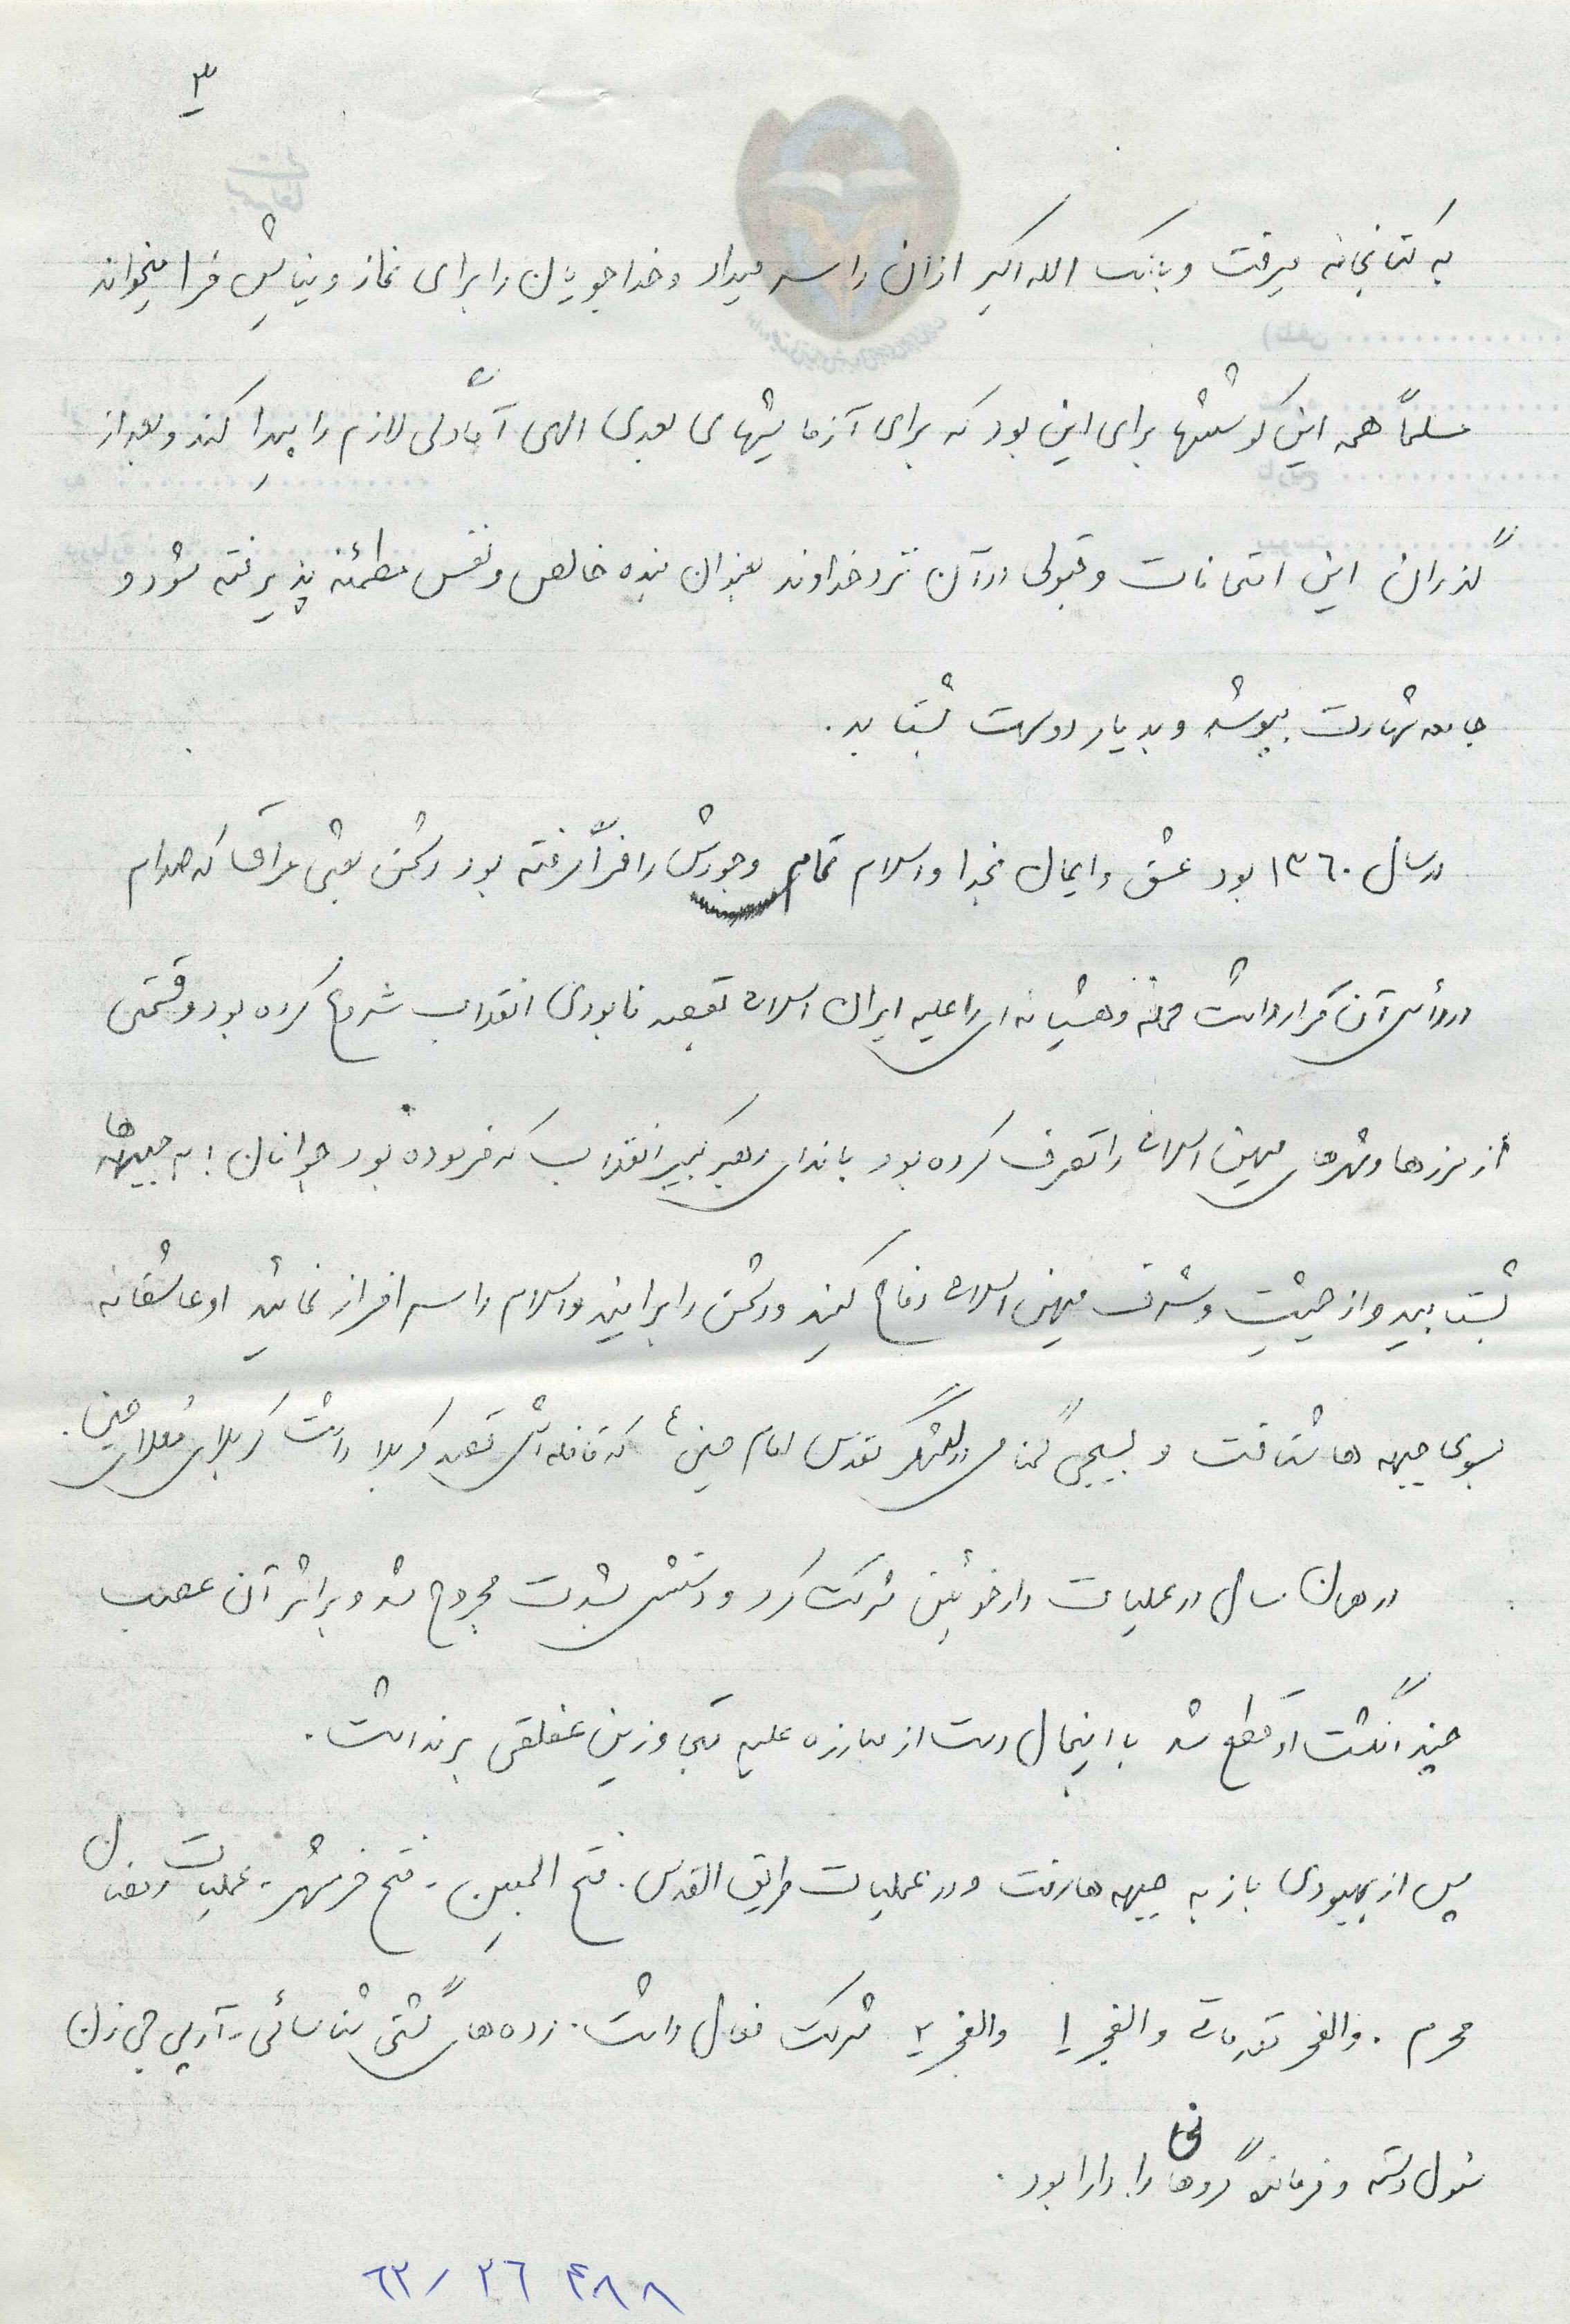 ۳
به کتابخانه میرفت و بانک الله اکبر اذان را سر میداد و خداجویان را برای نماز و نیایش فرا میخواند
مسلماً همه این کوششها برای این بود که برای آزمایشهای بعدی الهی آمادگی لازم را پیدا کند و بعد از
گذران این امتحانات و قبولی در آن نزد خداوند بعنوان بنده خالص و نفس مطمئنه پذیرفته شود و
جامه شهادت بپوشد و بدیار دوست بشتابد.
در سال ۱۳۶۰ بود عشق و ایمان بخدا و اسلام تمام وجودش را فرا گرفته بود دشمن بعثی عراق که صدام
در رأس آن قرار داشت حمله وحشیانه ای را علیه ایران اسلامی بقصد نابودی انقلاب شروع کرده بود و قسمتی
از مرزها و شهرهای میهن اسلامی را تصرف کرده بود با ندای رهبر کبیر انقلاب که فرموده بود جوانان! به جبهه ها
بشتابید و از حیثیت و شرف میهن اسلامی دفاع کنید و دشمن را برانید و اسلام را سرافراز نمائید او عاشقانه
بسوی جبهه ها شتافت و بسیجی گمنامی در لشگر مقدس امام حسین ع که قافله اش قصد کربلا داشت کربلای معلای حسین.
در همان سال در عملیات دارخوئین شرکت کرد و دستش بشدت مجروح شد و بر اثر آن عصب
چند انگشت او قطع شد با اینحال دست از مبارزه علیه متجاوزین عفلقی برنداشت.
پس از بهبودی باز به جبهه ها رفت و در عملیات طریق القدس. فتح المبین - فتح خرمشهر - عملیات رمضان
محرم. والفجر مقدماتی والفجر ۱ والفجر ۲ شرکت فعال داشت. رده های گشتی شناسائی - آر پی جی زن
مسئول دسته و فرمانده گروهانی را دارا بود.
۴۸۸ ۲۶/۶۲